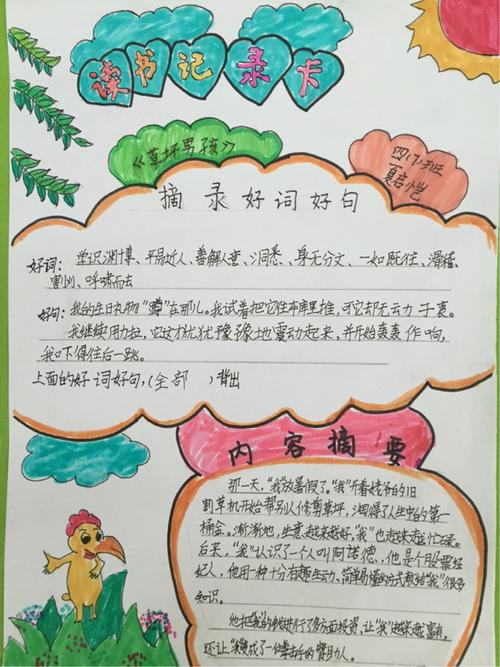 读书记录卡
《草坪男孩》
四(7)班
夏启恺
摘录好词好句
好词：学识渊博、平易近人、善解人意、洞悉、身无分文、一如既往、滑稽、
割刈、呼啸而去
好句：我的生日礼物"蹲"在那儿。我试着把它往车库里推，可它却无动于衷。
我继续用力拉，它这才犹犹豫豫地震动起来，并开始轰轰作响，
我吓得往后一跳。
上面的好词好句，(全部 )背出
内容摘要
那一天，"我"放暑假了。"我"开着姥爷的旧
割草机开始帮别人修剪草坪，淘得了人生中的第一
桶金。渐渐地，生意越来越好，"我"也越来越忙碌。
后来，"我"认识了一个人叫阿诺德，他是个股票经
纪人，他用一种十分有趣生动、简单易懂的方式教给"我"很多
知识。
他把"我"的钱进行了多方面投资，让"我"越来越富有，
还让"我"成了一个拳击手的赞助人。